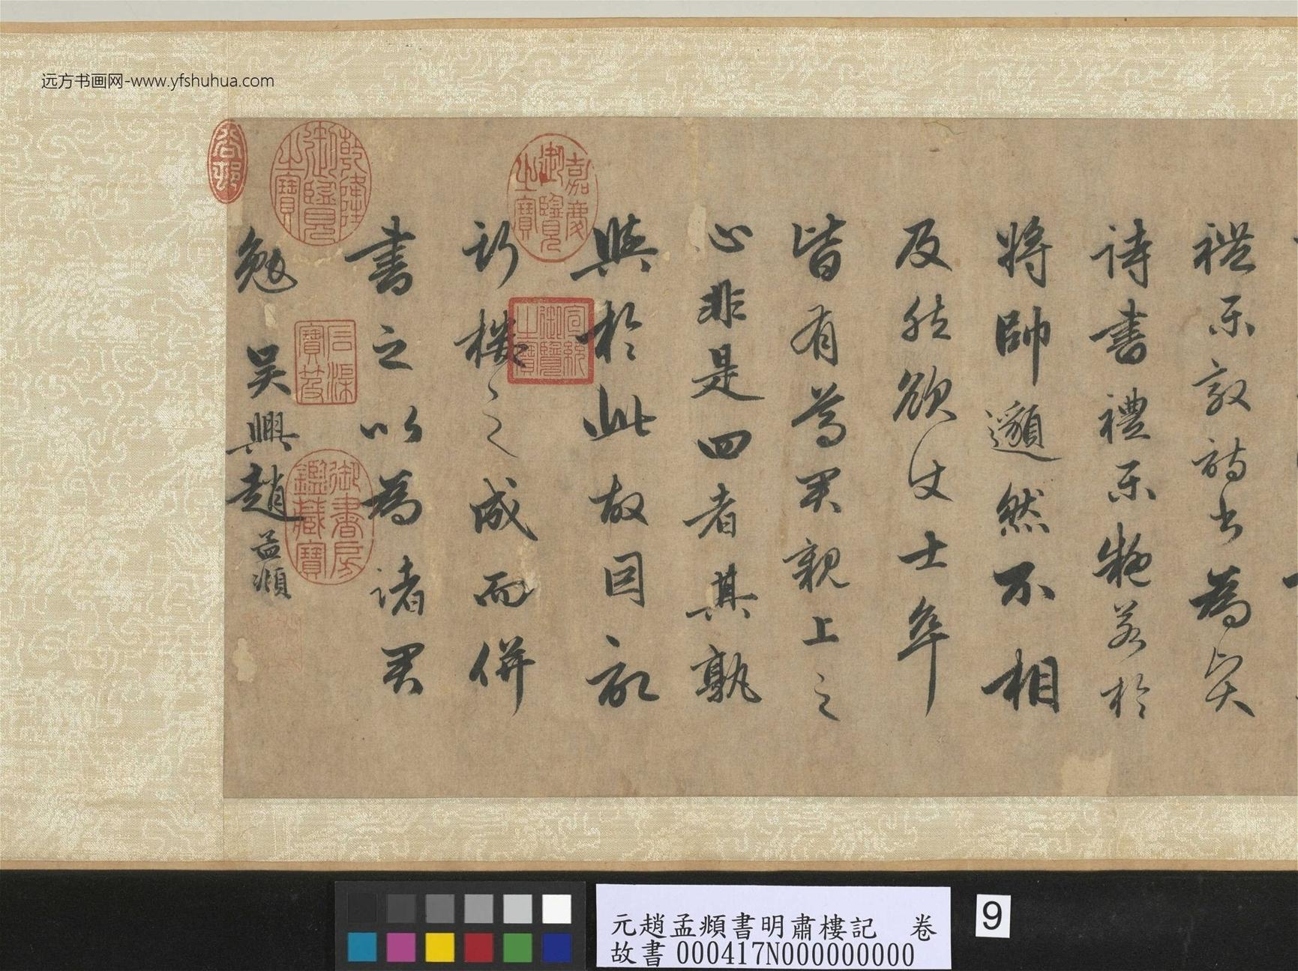 远方书画网-www.yfshuhua.com
禮樂敦詩書為實
詩書禮樂雖若於
將帥邈然不相
及然欲使士卒
皆有尊君親上之
心非是四者其孰
與於此故因記
新樓之成而併
書之以為諸君
勉 吳興趙孟頫
谷邨
乾隆御覽之寶
嘉慶御覽之寶
宣統御覽之寶
石渠寶笈
御書房鑑藏寶
元趙孟頫書明肅樓記 卷
故書000417N000000000
9